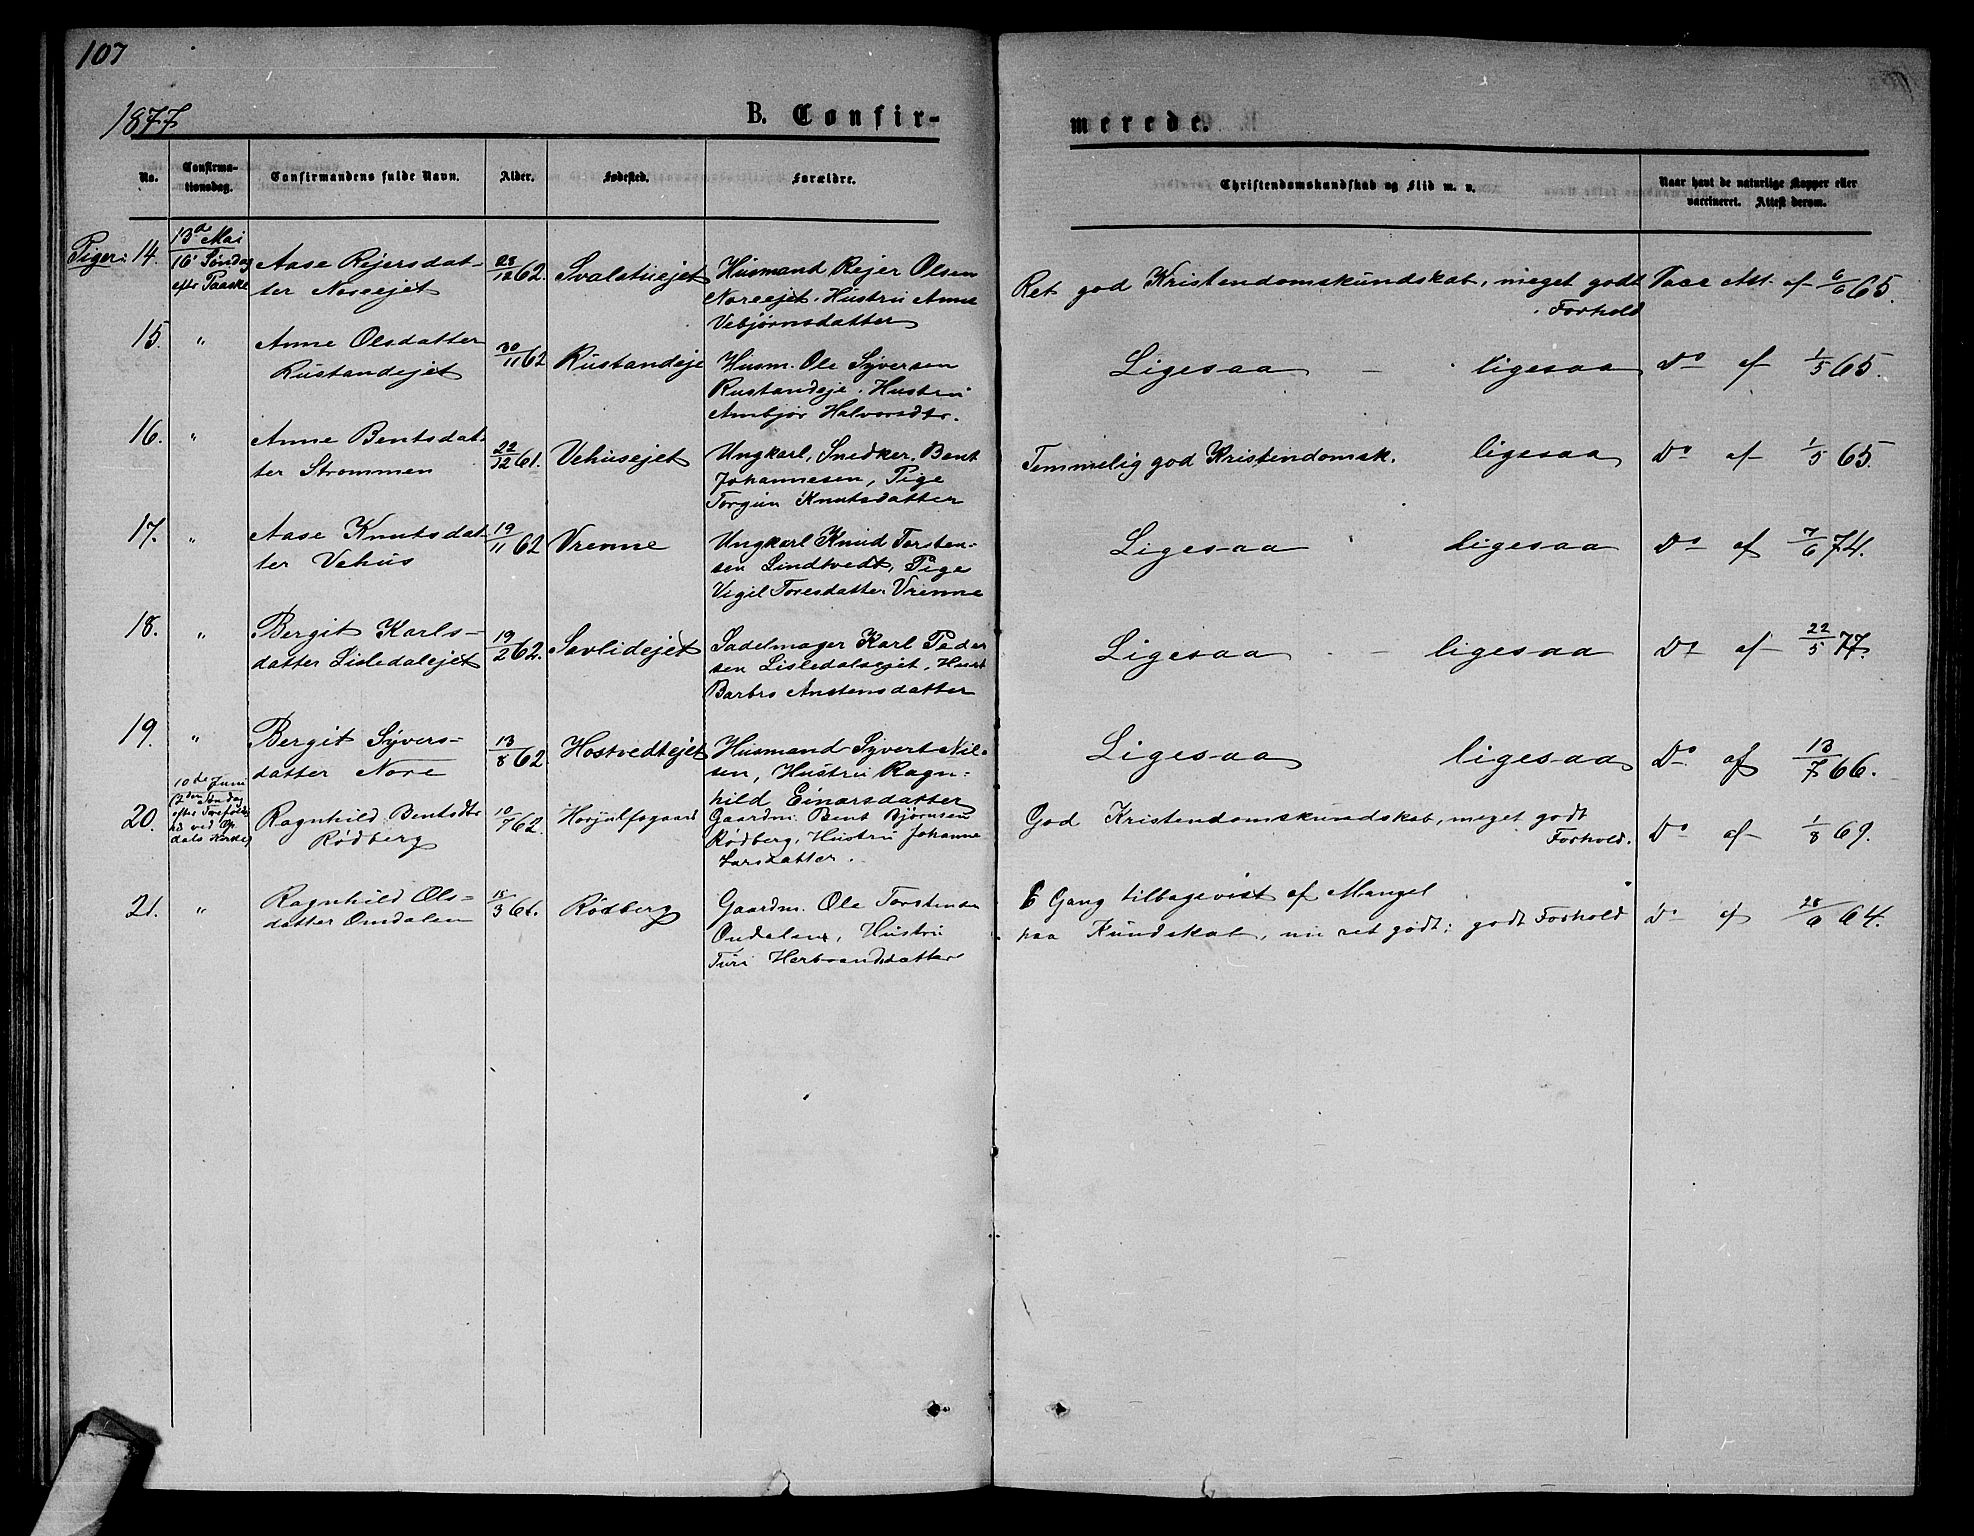 107
1877
B. Confir-
merede.
No.
Confirma-
tionsdag.
Confirmandens fulde Navn.
Alder.
Fødested.
Forældre.
Christendomskundskab og Flid m. v.
Naar havt de naturlige Kopper eller
vaccineret. Attest derom.
Piger: 14.
13de Mai
Søndag
efter Paaske
Aase Rejersdat-
ter Noreejet
28/12 62.
Svalatuejet
Husmand Rejer Olsen
Noreejet. Hustru Anne
Vebjørnsdatter
Ret god Kristendomskundskab, meget godt
Forhold
Vacc Att. af 6/6 65.
15.
"
Anne Olsdatter
Rustandejet
30/11 62
Rustandeje
Husm. Ole Syversen
Rustandeje. Hustru
Ambjør Halvorsdtr.
Ligesaa - ligesaa
Do af 1/5 65.
16.
"
Anne Bentsdat-
ter Strømmen
22/12 61.
Vehusejet
Ungkarl, Snedker. Bent
Johannesen, Pige
Torgun Knutsdatter
Temmelig god Kristendomsk. ligesaa
Do af 1/5 65.
17.
"
Aase Knutsdat-
ter Vehus
19/11 62
Vrenne
Ungkarl Knud Torsten-
sen Lindtvedt, Pige
Vigil Toresdatter Vrenne
Ligesaa ligesaa
Do af 7/6 74.
18.
"
Bergit Karls-
datter Lisledalejet
19/2 62.
Savlidejet
Sadelmager Karl Peder
sen Lisledalsejet, Hustr
Barbro Anstensdatter
Ligesaa - ligesaa
Do af 22/5 77.
19.
"
Bergit Syvers-
datter Nore
13/8 62.
Hostvedtejet
Husmand Syvert Nil-
sen, Hustru Ragn-
hild Einarsdatter
Ligesaa ligesaa
Do af 13/7 66.
20.
10de Juni
(2den Søndag
efter Trefoldig-
hd ved Op
dals Kirke)
Ragnhild Bentsdtr
Rødberg
10/7 62.
Horjulfsgaard
Gaardm. Bent Bjørnsen
Rødberg, Hustru Johanne
Larsdatter.
God Kristendomskundskab, meget godt
Forhold.
Do af 1/8 69.
21.
"
Ragnhild Ols-
datter Omdalen
15/3 61.
Rødberg
Gaardm. Ole Torstensen
Omdalen, Hustru
Turi Herbrandsdatter
Gang tilbagevist af Mangel
paa Kundskab, nu ret godt; godt Forhold
Do af 28/6 64.